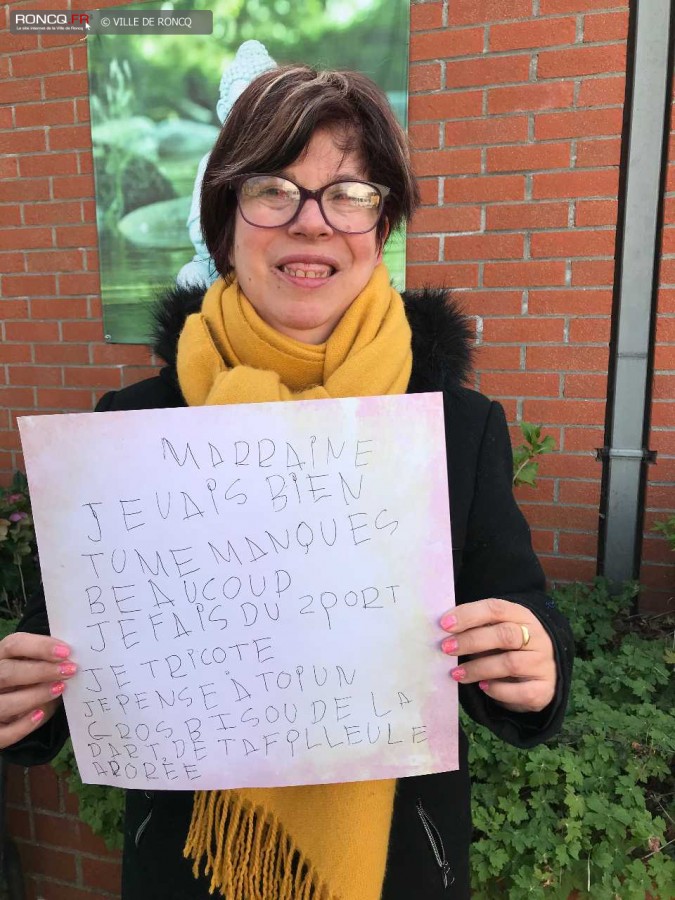 RONCQ.FR
Le site internet de la Ville de Roncq
© VILLE DE RONCQ
MARRAINE
JE VAIS BIEN
TU ME MANQUES
BEAUCOUP
JE FAIS DU 2PORT
JE TRICOTE
JE PENSE À TOI UN
GROS BISOU DE LA
PART DE TA FILLEULE
ADORÉE